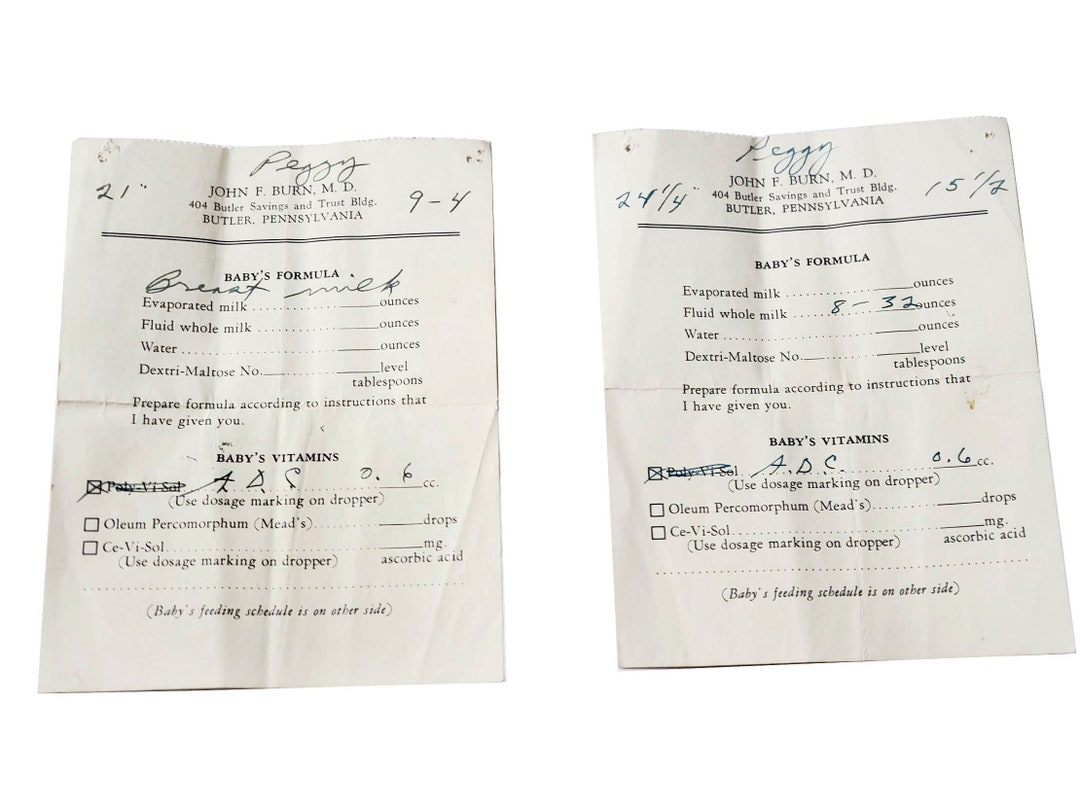 Peggy
21" JOHN F. BURN, M. D. 9-4
404 Butler Savings and Trust Bldg.
BUTLER, PENNSYLVANIA
BABY'S FORMULA
Breast milk
Evaporated milk ..................ounces
Fluid whole milk ..................ounces
Water ..................ounces
Dextri-Maltose No.____........____level
tablespoons
Prepare formula according to instructions that
I have given you.
BABY'S VITAMINS
☒ Poly-Vi-Sol A. D. C. 0.6 cc.
(Use dosage marking on dropper)
☐ Oleum Percomorphum (Mead's)..........____drops
☐ Ce-Vi-Sol..................____mg.
(Use dosage marking on dropper) ascorbic acid
(Baby's feeding schedule is on other side)
Peggy
24 1/4" JOHN F. BURN, M. D. 15 1/2
404 Butler Savings and Trust Bldg.
BUTLER, PENNSYLVANIA
BABY'S FORMULA
Evaporated milk ..................ounces
Fluid whole milk ....8 - 32 ounces
Water ..................ounces
Dextri-Maltose No.____........____level
tablespoons
Prepare formula according to instructions that
I have given you.
BABY'S VITAMINS
☒ Poly-Vi-Sol A.D.C. 0.6 cc.
(Use dosage marking on dropper)
☐ Oleum Percomorphum (Mead's)..........____drops
☐ Ce-Vi-Sol..................____mg.
(Use dosage marking on dropper) ascorbic acid
(Baby's feeding schedule is on other side)